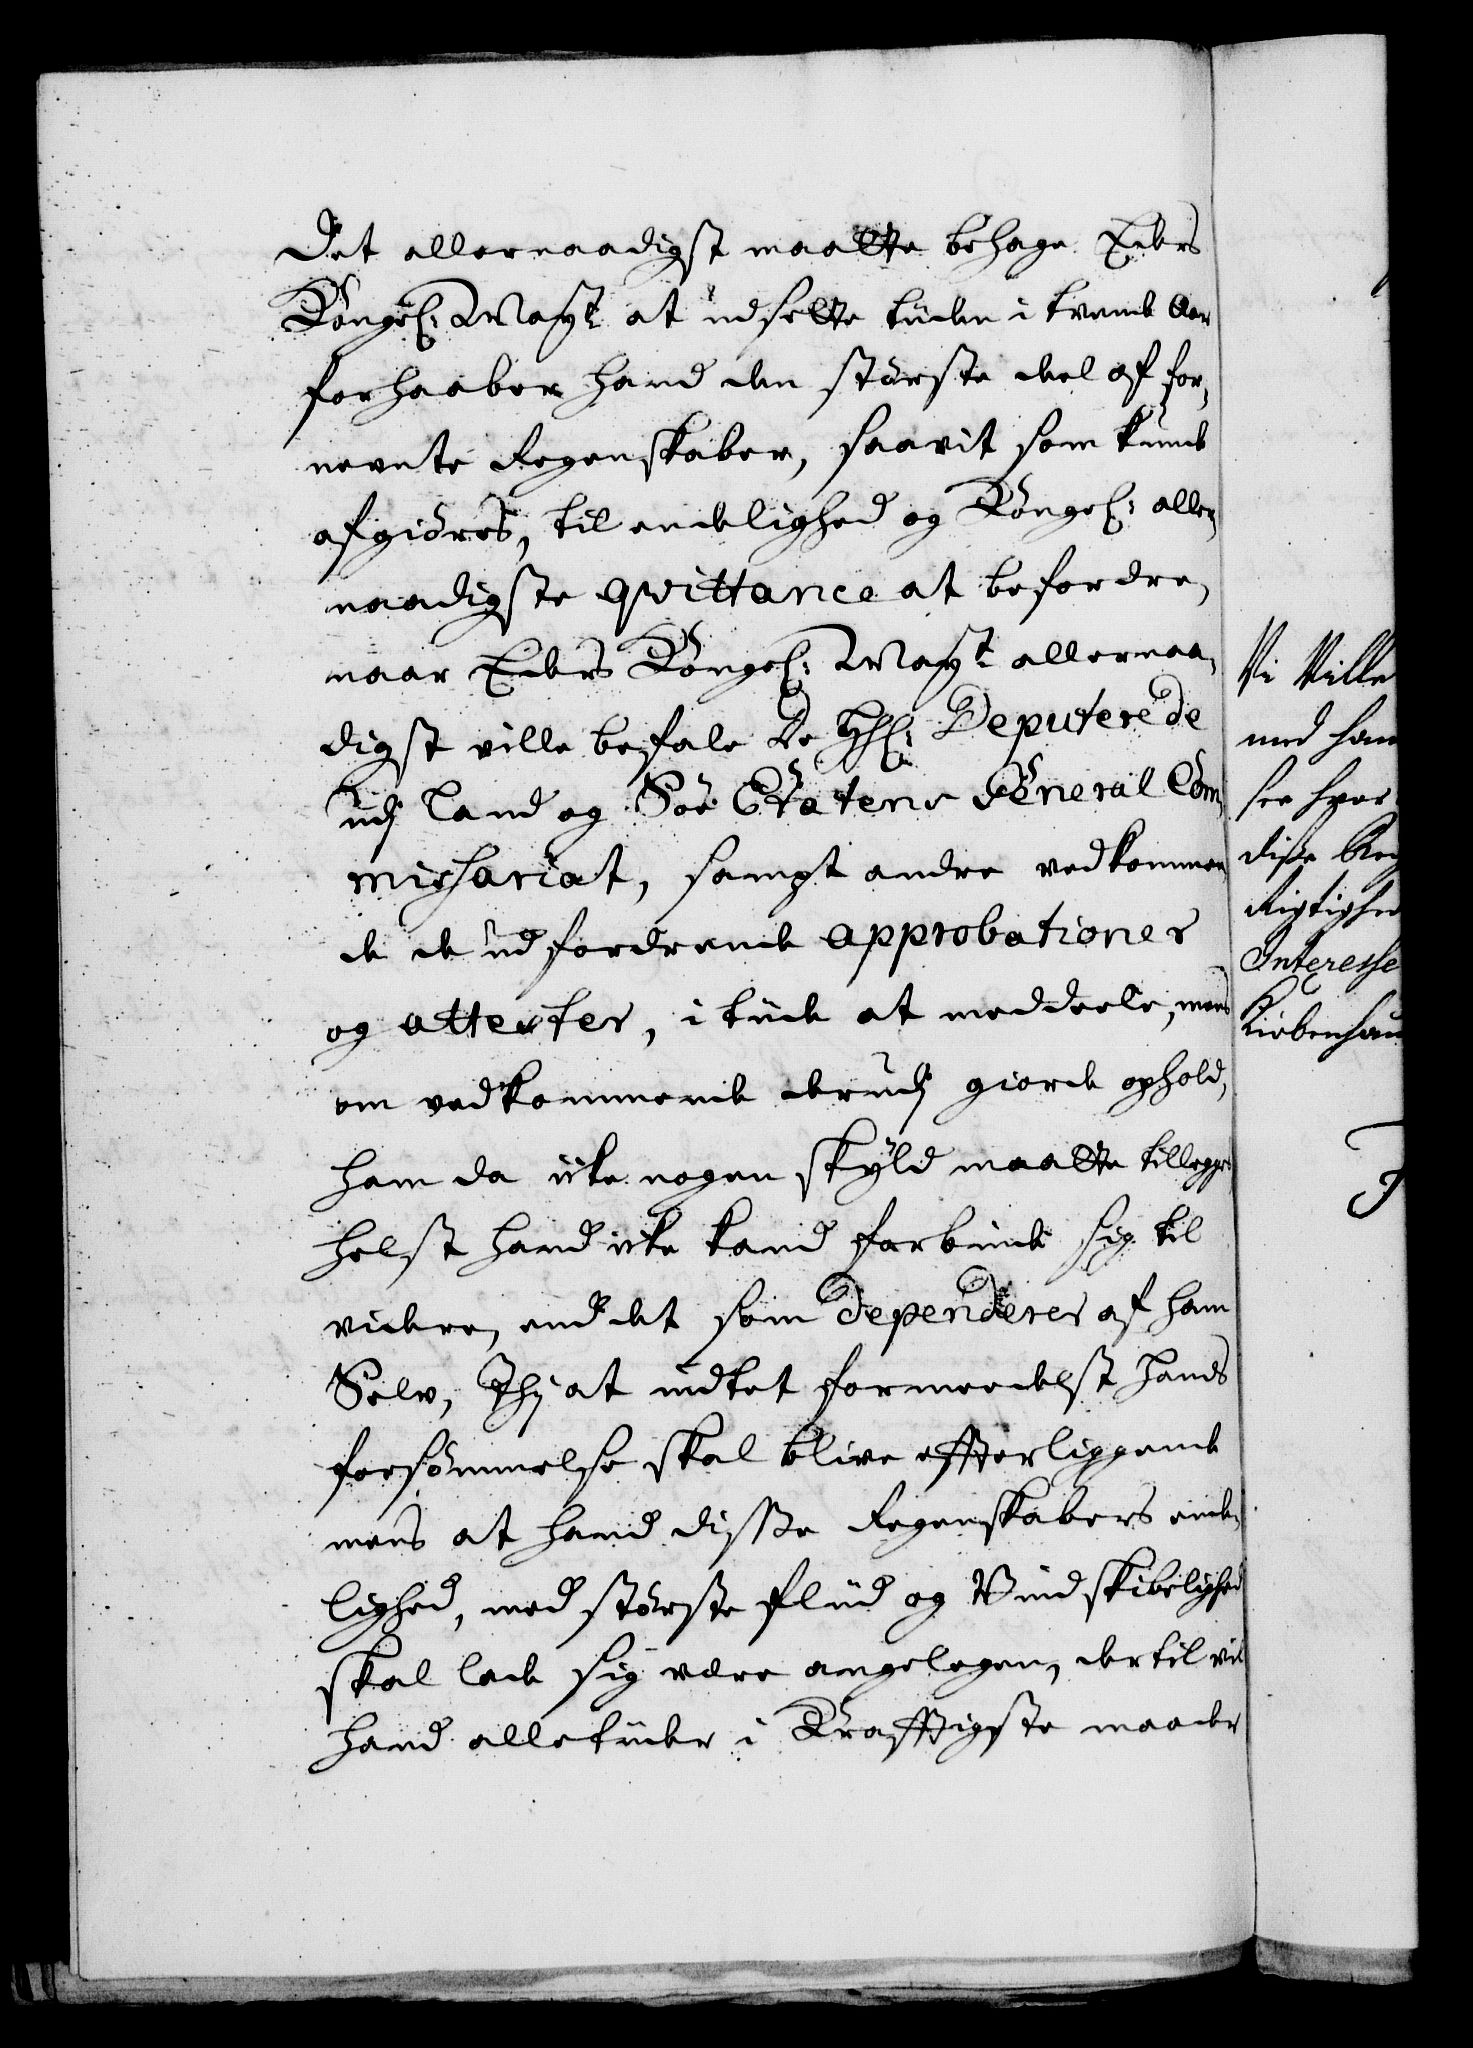 Det allernaadigst maatte behage Eders
Kongel: May.t at udsette tiiden i tvende Aar
forhaaber hand den störste deel af for,
nevnte Regenskaber, saavit som kunde
afgiöres, til endelighed og Kongel: aller,
naadigste qvittance at befordre,
naar Eders Kongel: May.t allernaa,
digst ville befale De HHl: Deputerede
udj Land og Söe Etatens General Com,
mishariat, sampt andre vedkommen,
de de udfordrende approbationer
og attester, i tiide at meddeele, mens
om vedkommende derudj giorde ophold,
ham da icke nogen skyld maatte tillegges
helst hand icke kand forbinde sig til
videre, end det som dependerer af ham
Selv, Thj at indtet formeedelst hands
forsömmelse skal blive efterliggende
mens at hand disse Regenskabers ende,
lighed, med störste fliid og Vindskibelighed
skal lade sig være angelegen, dertil vil
hand alletiider i Krafftigste maader
Vi Ville
med ham
see hvor
disse Reg
Rigtighed
Interesse
Kiöbenhau